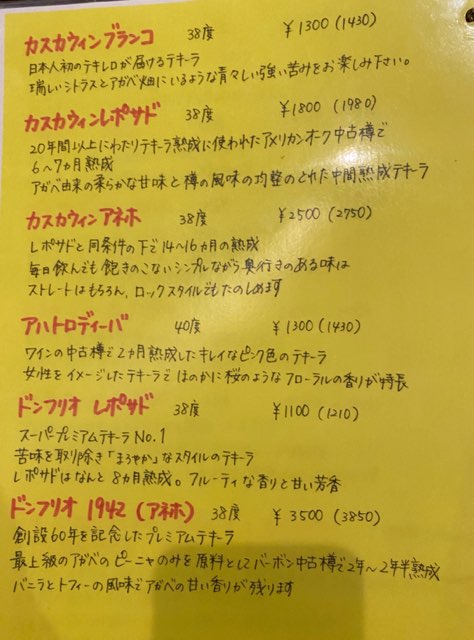 カスカウィンブランコ 38度 ¥1300(1430)
日本人初のテキレロが届けるテキーラ
瑞しいシトラスとアガベ畑にいるような青々しい強い苦みをお楽しみ下さい。
カスカウィンレポサド 38度 ¥1800(1980)
20年間以上にわたりテキーラ熟成に使われたアメリカンオーク中古樽で
6〜7カ月熟成
アガベ由来の柔らかな甘味と樽の風味の均整のとれた中間熟成テキーラ
カスカウィンアネホ 38度 ¥2500(2750)
レポサドと同条件の下で14〜16カ月の熟成
毎日飲んでも飽きのこないシンプルながら奥行きのある味は
ストレートはもちろん、ロックスタイルでもたのしめます
アハトロディーバ 40度 ¥1300(1430)
ワインの中古樽で2カ月熟成したキレイなピンク色のテキーラ
女性をイメージしたテキーラでほのかに桜のようなフローラルの香りが特長
ドンフリオ レポサド 38度 ¥1100(1210)
スーパープレミアムテキーラNo.1
苦味を取り除き「まろやか」なスタイルのテキーラ
レポサドはなんと8カ月熟成。フルーティな香りと甘い芳香
ドンフリオ 1942(アネホ) 38度 ¥3500(3850)
創設60年を記念したプレミアムテキーラ
最上級のアガベのピーニャのみを原料としてバーボン中古樽で2年〜2年半熟成
バニラとトフィーの風味でアガベの甘い香りが残ります